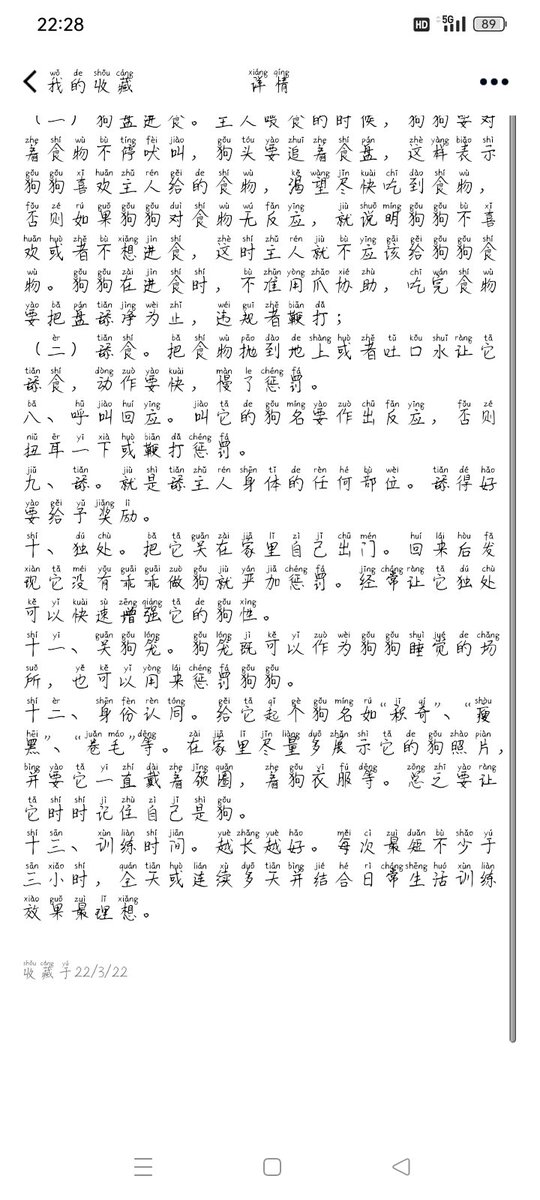 22:28
HD 5G 89
我的收藏 详情
(一) 狗盘进食。主人喂食的时候, 狗狗要对
着食物不停吠叫, 狗头要追着食盘, 这样表示
狗狗喜欢主人给的食物, 渴望尽快吃到食物,
否则如果狗狗对食物无反应, 就说明狗狗不喜
欢或者不想进食, 这时主人就不应该给狗狗食
物。狗狗在进食时, 不准用爪协助, 吃完食物
要把盘舔净为止, 违规者鞭打;
(二) 舔食。把食物抛到地上或者吐口水让它
舔食, 动作要快, 慢了惩罚。
八、呼叫回应。叫它的狗名要作出反应, 否则
扭耳一下或鞭打惩罚。
九、舔。就是舔主人身体的任何部位。舔得好
要给予奖励。
十、独处。把它关在家里自己出门。回来后发
现它没有乖乖做狗就严加惩罚。经常让它独处
可以快速增强它的狗性。
十一、关狗笼。狗笼既可以作为狗狗睡觉的场
所, 也可以用来惩罚狗狗。
十二、身份认同。给它起个狗名如“积奇”、“瘦
黑”、“卷毛”等。在家里尽量多展示它的狗照片,
并要它一直戴着颈圈, 着狗衣服等。总之要让
它时时记住自己是狗。
十三、训练时间。越长越好。每次最短不少于
三小时, 全天或连续多天并结合日常生活训练
效果最理想。
收藏于22/3/22